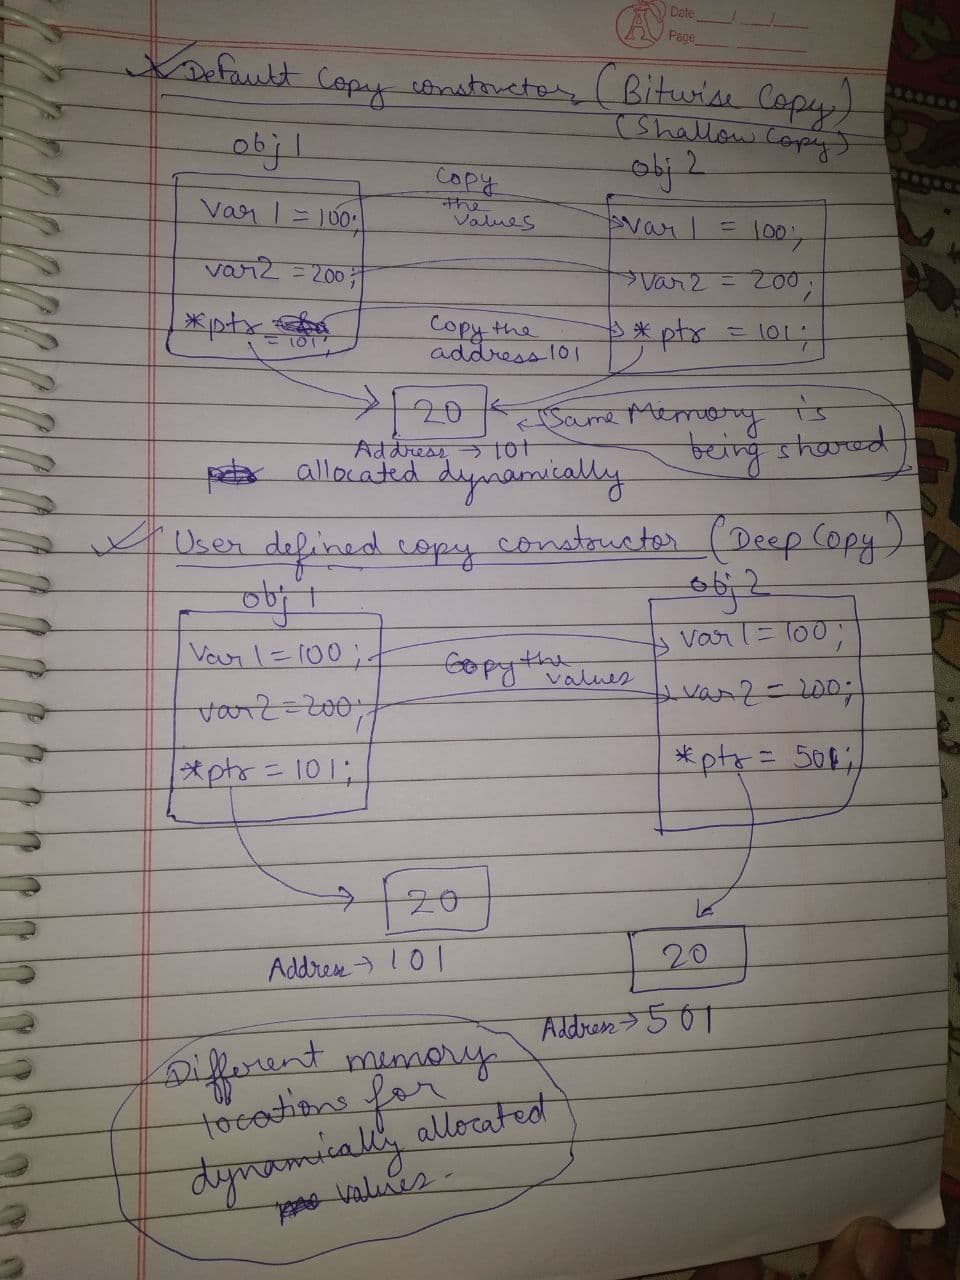 Date
Page
Default Copy constructor (Bitwise Copy)
(Shallow Copy)
obj 1
obj 2
var 1 = 100;
var2 = 200;
*ptr = 101;
Copy
the
values
Copy the
address 101
var 1 = 100;
var2 = 200;
*ptr = 101;
20
Same Memory is
being shared
Address → 101
allocated dynamically
User defined copy constructor (Deep Copy)
obj 1
obj 2
var 1 = 100;
var2 = 200;
*ptr = 101;
Copy the
values
var 1 = 100;
var2 = 200;
*ptr = 501;
20
Address → 101
20
Address → 501
Different memory
locations for
dynamically allocated
values.